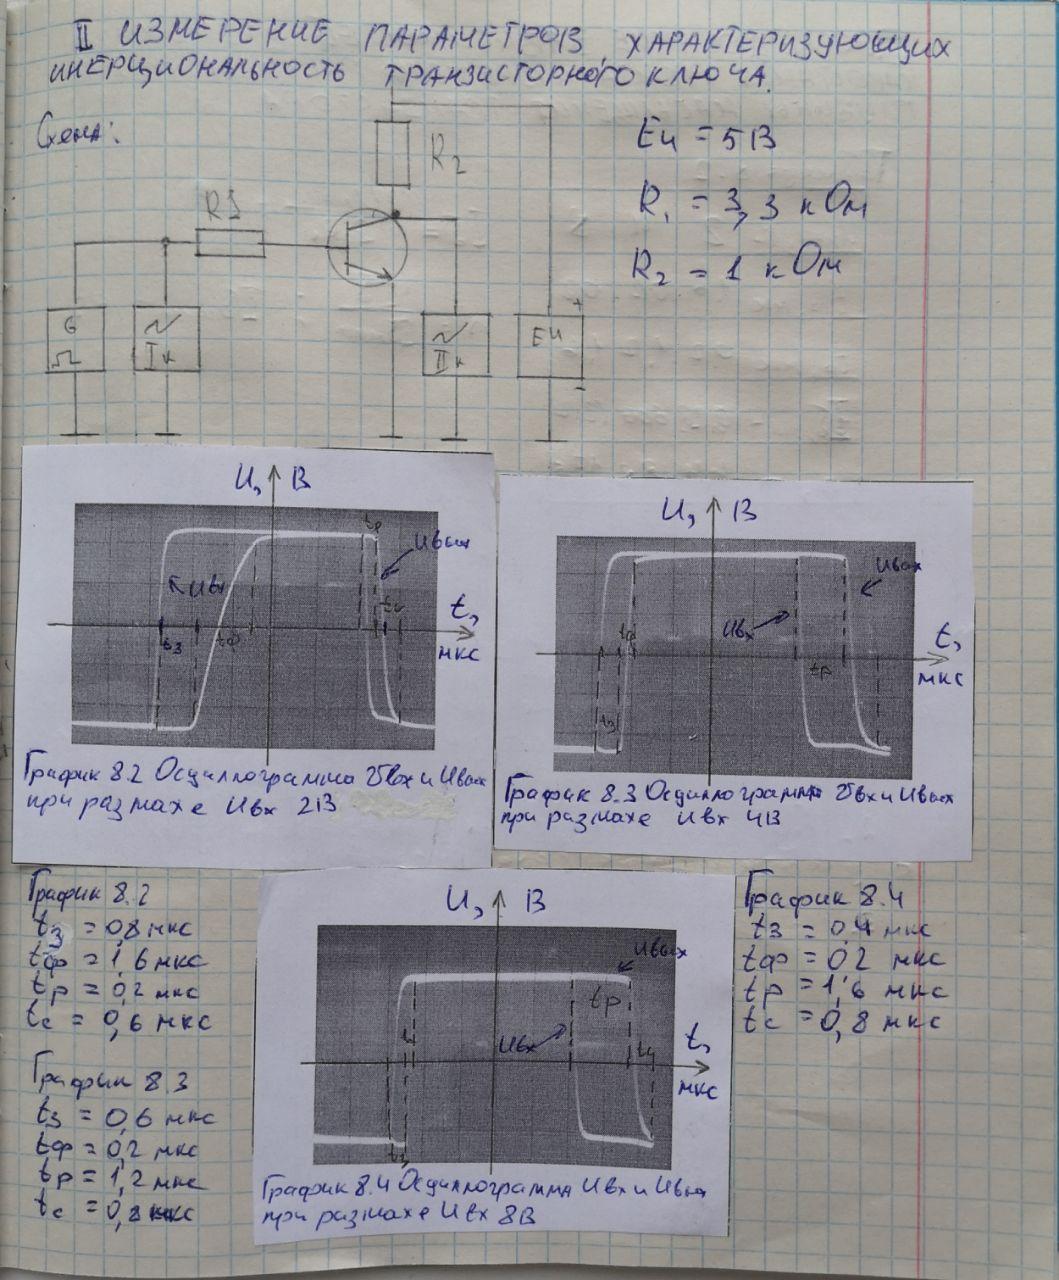 II ИЗМЕРЕНИЕ ПАРАМЕТРОВ, ХАРАКТЕРИЗУЮЩИХ
ИНЕРЦИОНАЛЬНОСТЬ ТРАНЗИСТОРНОГО КЛЮЧА.
Схема:
Eи = 5В
R₁ = 3,3 кОм
R₂ = 1 кОм
R2
R1
G
Iк
IIк
Eи
+
-
U, В
tр
Uвых
Uвх
tз
tф
tс
t,
мкс
График 8.2 Осциллограмма Uвх и Uвых
при размахе Uвх 2В
U, В
Uвых
tф
Uвх
tз
tр
t,
мкс
График 8.3 Осциллограмма Uвх и Uвых
при размахе Uвх 4В
График 8.2
tз = 0,8 мкс
tф = 1,6 мкс
tр = 0,2 мкс
tс = 0,6 мкс
График 8.3
tз = 0,6 мкс
tф = 0,2 мкс
tр = 1,2 мкс
tс = 0,8 мкс
U, В
Uвых
tр
Uвх
t,
мкс
График 8.4 Осциллограмма Uвх и Uвых
при размахе Uвх 8В
График 8.4
tз = 0,4 мкс
tф = 0,2 мкс
tр = 1,6 мкс
tс = 0,8 мкс